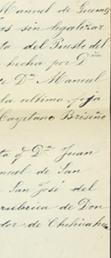 Manuel de Guerra
os sin legalizar
ta del Puesto del
hecha por Dn
e Dn Manuel
la ultima foja
Cayetano Briseño
ta á Dn Juan
nuel de San
San José del
rubrica de Don
dor de Chihuahua